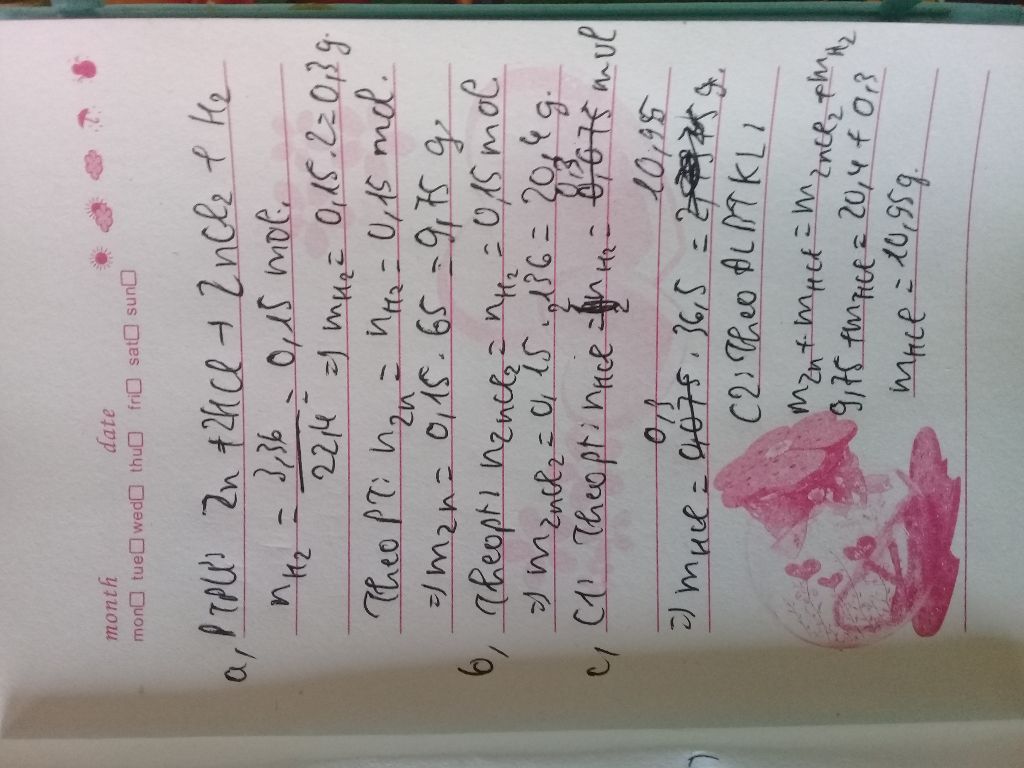 month date
mon tue wed thu fri sat sun
a, PTPU: Zn + 2HCl → ZnCl₂ + H₂
nH₂ = 3,36 / 22,4 = 0,15 mol.
=) mH₂ = 0,15.2 = 0,3 g.
Theo PT: nZn = nH₂ = 0,15 mol.
=) mZn = 0,15 . 65 = 9,75 g,
b, Theo pt: nZnCl₂ = nH₂ = 0,15 mol.
=) mZnCl₂ = 0,15 . 136 = 20,4 g.
c, C1: Theo pt: nHCl = 2 nH₂ = 0,3 mol
=) mHCl = 0,3 . 36,5 = 10,95 g.
C2: Theo ĐLBTKL:
mZn + mHCl = mZnCl₂ + mH₂
9,75 + mHCl = 20,4 + 0,3
mHCl = 10,95 g.